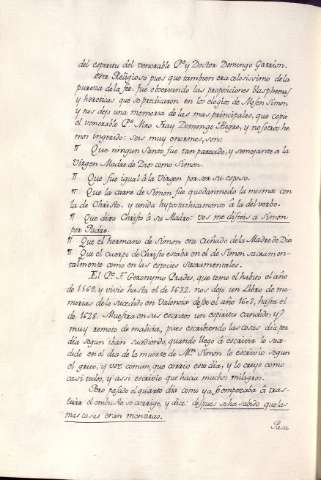 del espiritu del venerable Pe. y Doctor Domingo Garrison.
Este Religioso pues que tambien era celosissimo de la
pureza de la fe, fue observando las proposiciones blasphemas
y hereticas que se predicaron en los elogios de Mosen Simon
y nos dejó una memoria de las mas principales, que copia
el venerable Pe. Mro. Fray Domingo Alegre, y nosotros he
mos ingerido: seis muy enormes, son:
¶ Que ningun Santo fue tan parecido, y semejante a la
Virgen Madre de Dios como Simon.
¶ Que fue igual à la Virgen por ser su esposo.
¶ Que la carne de Simon fue quodammodo la mesma con
la de Christo, y unida hypostaticamente à la del verbo.
¶ Que dixo Christo à su Madre: vos me disteis a Simon
por Padre.
¶ Que el hermano de Simon era Cuñado de la Madre de Dios
¶ Que el cuerpo de Christo estaba en el de Simon sacramen-
talmente como en las especies sacramentales.
El Pe. F. Geronymo Pradas, que tomó el habito el año
de 1568, y vivió hasta el de 1632. nos dejó un Libro de me-
morias de lo sucedido en Valencia desde el año 1603, hasta el
de 1628. Muestra en sus escritos un espiritu candido, y
muy remoto de malicia, pues escribiendo las cosas dia por
dia segun iban sucediendo, quando llegó à escribir lo suce-
dido en el dia de la muerte de Mn. Simon lo escrivió segun
el grito, y voz comun que corrio este dia, y lo creyó como
casi todos, y assi escrivió que hacia muchos milagros.
Pero passado el quarto dia como ya empezaba à tras-
lucir el embuste se corrige, y dice: despues se ha sabido que las
mas cosas eran mentiras.